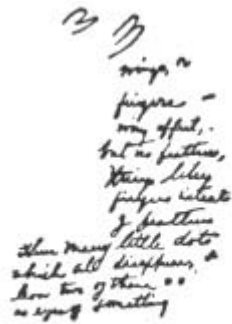 wings, or
fingers —
may effect,.
but no feathers,
things like
fingers instead
of feathers
then many little dots
which all disappears, &
how two of them ••
as eyes of something